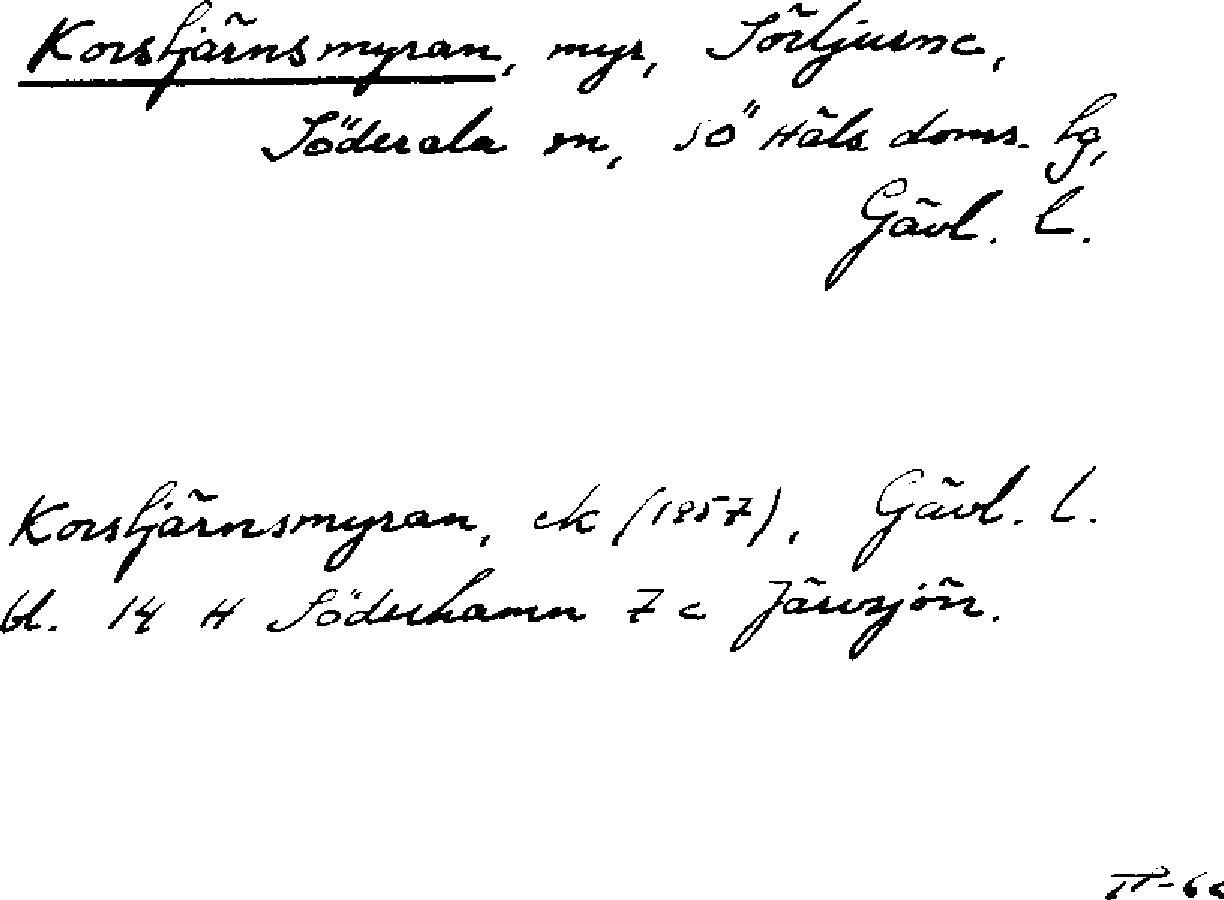 Korstjärnsmyran, myr, Sörljusne,
Söderala sn, SÖ Häls doms. hg,
Gävl. l.
Korstjärnsmyran, ek (1957), Gävl. l.
bl. 14 H Söderhamn 7 c Järvsjön.